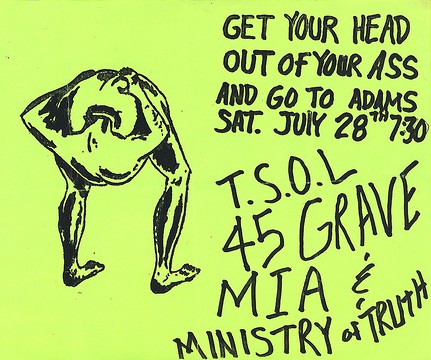 GET YOUR HEAD
OUT OF YOUR ASS
AND GO TO ADAMS
SAT. JULY 28TH 7:30
T.S.O.L
45 GRAVE
MIA &
MINISTRY of TRUTH